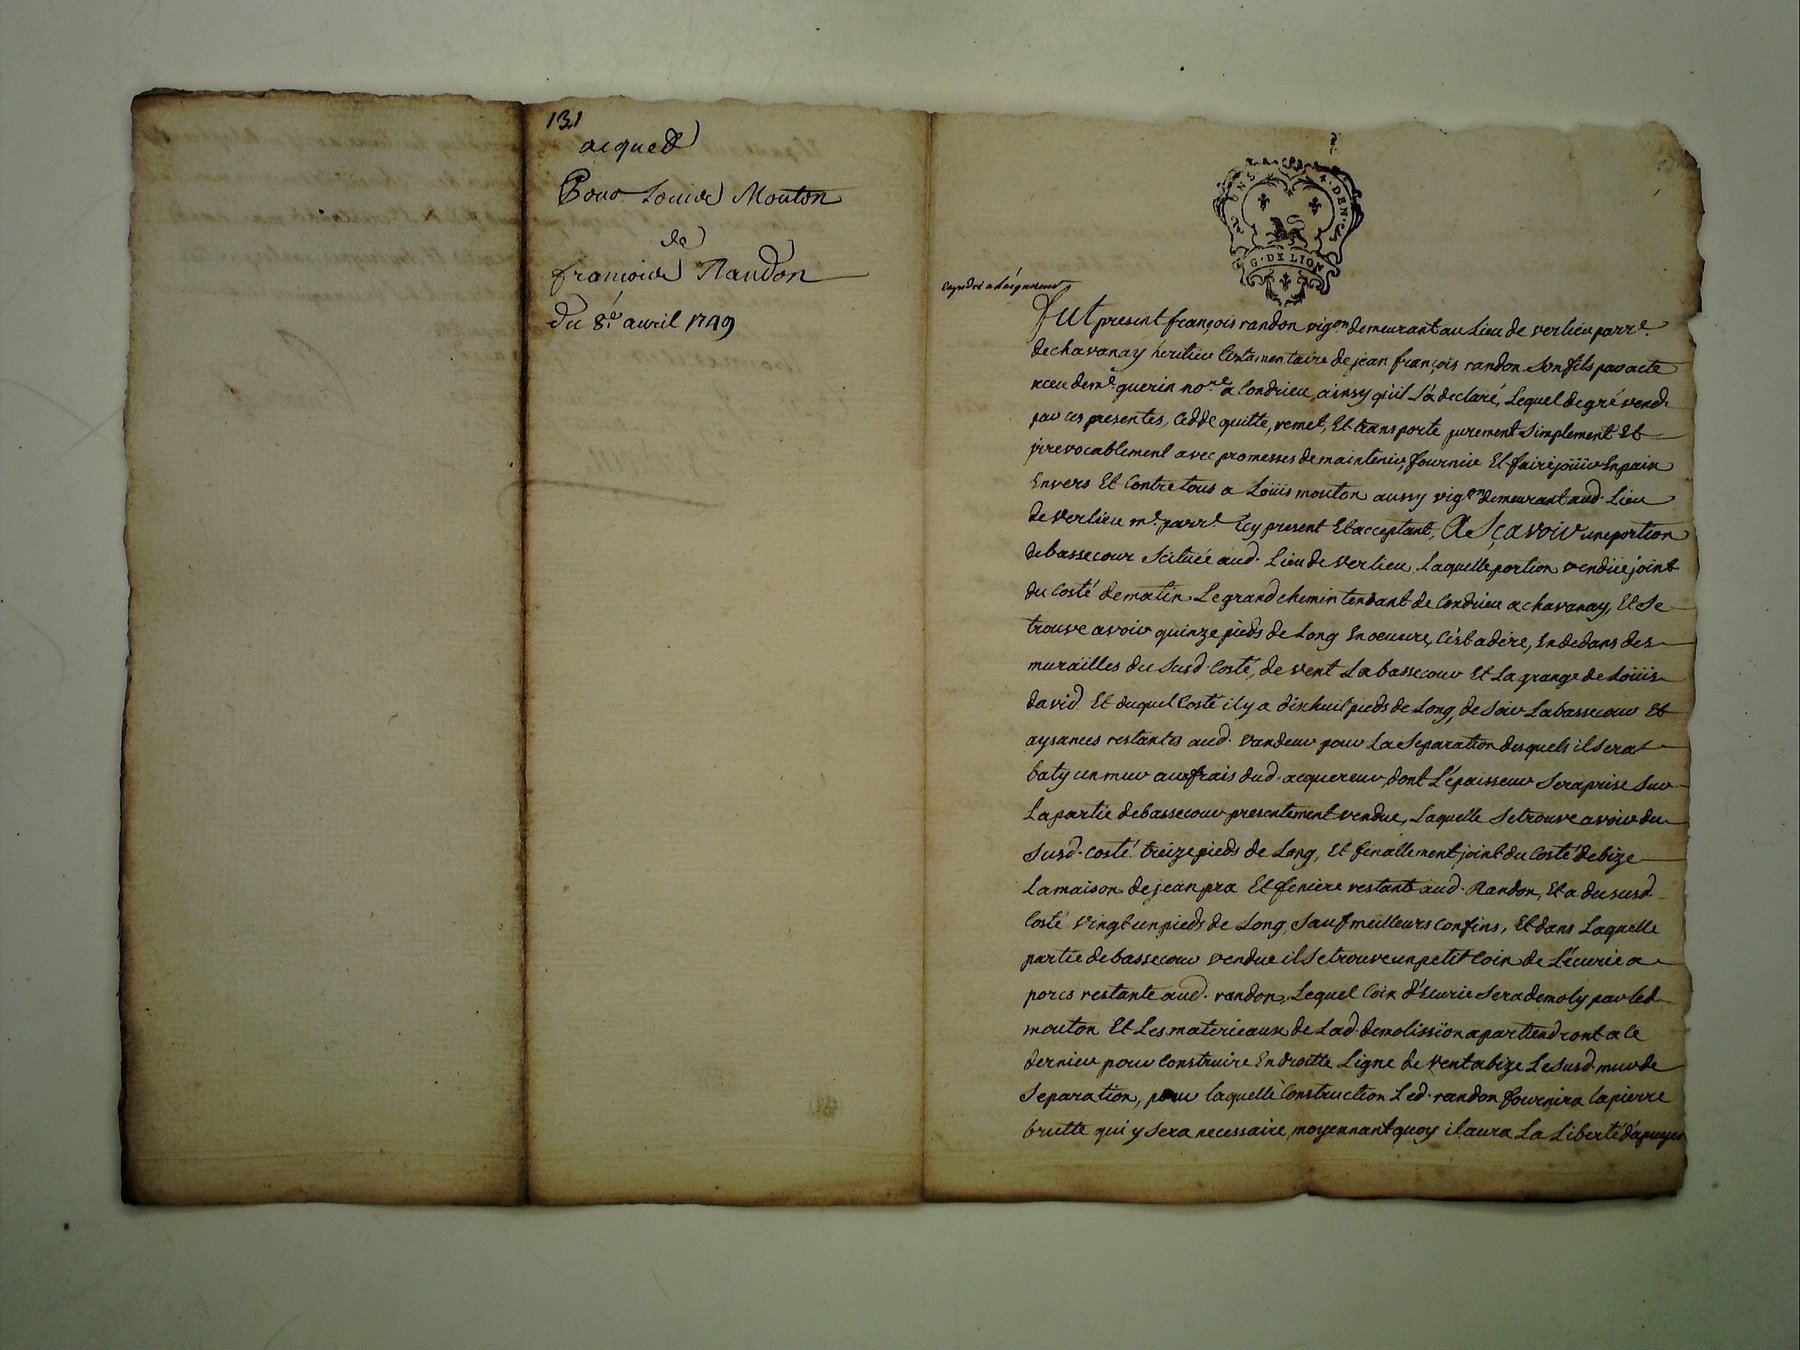 131
acquet
Pour Louis Mouton
de
françois Randon
du 8.e avril 1749
G. DE LION
expedié a l'acquereur
Fut present françois randon vigon demeurant au Lieu de verlieu parre.
de chavanay heritier testamentaire de jean françois randon son fils par acte
receu de me. guerin nore. a Condrieu, ainsy qu'il l'a declaré, Lequel de gré vend
par ces presentes, Cedde quitte, remet, Et transporte purement simplement Et
jrrevocablement avec promesses de maintenir, fournir Et faire joüir En paix
Envers Et Contre tous a Loüis mouton aussy vigon demeurant aud. Lieu
de verlieu me. parre. Icy present Et acceptant, A Sçavoir une portion
de bassecour Scituée aud. Lieu de verlieu, Laquelle portion vendüe joint
du Costé de matin Le grand chemin tendant de Condrieu a chavanay, Et se
trouve avoir quinze pieds de Long En oeuvre, C'est a dire, En dedans des
muraïlles du susd. Costé, de vent La bassecour Et La grange de Loüis
david Et duquel Costé il y a dixhuit pieds de Long, de soir La bassecour Et
aysances restantes aud. vandeur pour La Separation desquels il sera
baty un mur aux frais dud. acquereur, dont L'épaisseur Sera prise sur
La partie de bassecour presentement vendue, Laquelle Se trouve avoir du
susd. costé treize pieds de Long, Et finallement joint du Costé de bize
La maison de jean pra Et feniere restante aud. Randon, Et a du susd.
Costé vingt un pieds de Long, Sauf meilleurs confins, Et dans Laquelle
partie de bassecour vendue il Se trouve un petit Coin de L'écurie a
porcs restante aud. randon, Lequel Coin d'écurie Sera demoly par led.
mouton Et Les materieaux de Lad. demolission apartiendront a ce
dernier pour Construire En droitte Ligne de vent a bize Le Susd. mur de
Separation, pour laquelle Construction Led. randon fournira la pierre
brutte qui y Sera necessaire, moyennant quoy il aura La Liberté d'apuyer